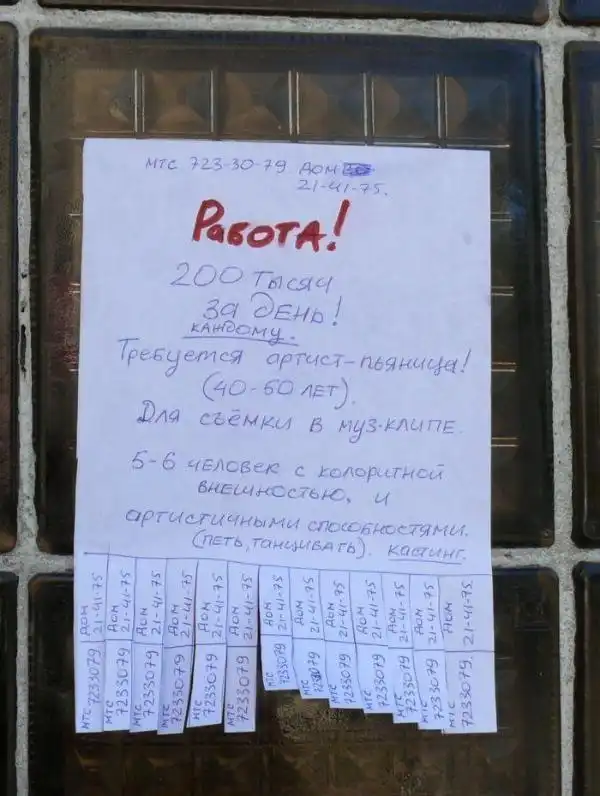 МТС 723-30-79 ДОМ
21-41-75.
РАБОТА!
200 ТЫСЯЧ
ЗА ДЕНЬ!
КАЖДОМУ.
ТРЕБУЕТСЯ АРТИСТ-ПЬЯНИЦА!
(40-60 ЛЕТ).
ДЛЯ СЪЁМКИ В МУЗ-КЛИПЕ.
5-6 ЧЕЛОВЕК С КОЛОРИТНОЙ
ВНЕШНОСТЬЮ. И
АРТИСТИЧНЫМИ СПОСОБНОСТЯМИ.
(ПЕТЬ, ТАНЦИВАТЬ). КАСТИНГ.
МТС ДОМ
7233079 21-41-75
МТС ДОМ
7233079 21-41-75
МТС ДОМ
7233079 21-41-75
МТС ДОМ
7233079 21-41-75
МТС ДОМ
7233079 21-41-75
МТС ДОМ
7233079 21-41-75
МТС ДОМ
7233079 21-41-75
МТС ДОМ
7233079 21-41-75
МТС ДОМ
7233079 21-41-75
МТС ДОМ
7233079 21-41-75
МТС ДОМ
7233079 21-41-75
МТС ДОМ
7233079 21-41-75
МТС ДОМ
7233079. 21-41-75.